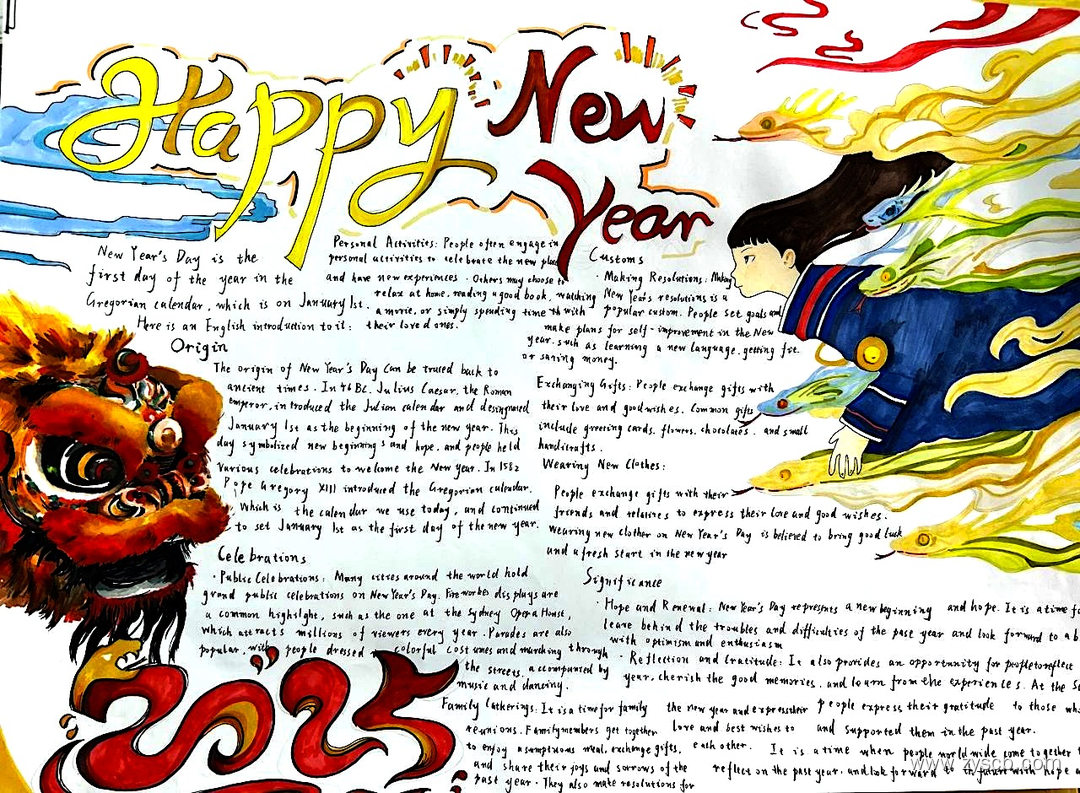 Happy New
Year
New Year's Day is the
first day of the year in the
Gregorian calendar, which is on January 1st.
Here is an English introduction to it:
Origin
The origin of New Year's Day can be trused back to
ancient times. In 46 BC. Julius Caesar, the Roman
emperor, introduced the Julian calendar and designated
January 1st as the beginning of the new year. This
day symbolized new beginnings and hope, and people held
various celebrations to welcome the New Year. In 1582
Pope Gregory XIII introduced the Gregorian calendar,
which is the calendar we use today, and continued
to set January 1st as the first day of the new year.
Celebrations
· Public Celebrations: Many cities around the world hold
grand public celebrations on New Year's Day. Fireworkes displays are
a common highlight, such as the one at the Sydney Opera House,
which attracts millions of viewers every year. Parades are also
popular, with people dressed colorful costumes and marching through
the streets, accompanied by
music and dancing.
Family Gatherings: It is a time for family
reunions. Family members get together
to enjoy a sumptuous meal, exchange gifts,
and share their joys and sorrows of the
past year. They also make resolutions for
the new year and express their
love and best wishes to
each other.
Personal Activities: People often engage in
personal activities to celebrate the new
and have new experiences. Others may choose to
relax at home, reading a good book, watching
a movie, or simply spending time with
their loved ones.
Customs
· Making Resolutions: Making
New Year's resolutions is a
popular custom. People set goals and
make plans for self-improvement in the New
year, such as learning a new language, getting fit.
or saving money.
Exchanging Gifts: People exchange gifts with
their love and good wishes. Common gifts
include greeting cards, flowers, chocolates, and small
handicrafts.
Wearing New Clothes:
People exchange gifts with their
friends and relatives to express their love and good wishes.
Wearing new clother on New Year's Day is believed to bring good luck
and a fresh start in the new year
Significance
· Hope and Renewal: New Year's Day represents a new beginning and hope. It is a time
leave behind the troubles and difficulties of the past year and look forward to a
with optimism and enthusiasm
· Reflection and Gratitude: It also provides an opportunity for people to reflect
year, cherish the good memories, and learn from the experiences. At the
people express their gratitude to those
and supported them in the past year.
It is a time when people worldwide come together
reflect on the past year, and look forward to future with hope
2025
www.zyscb.com